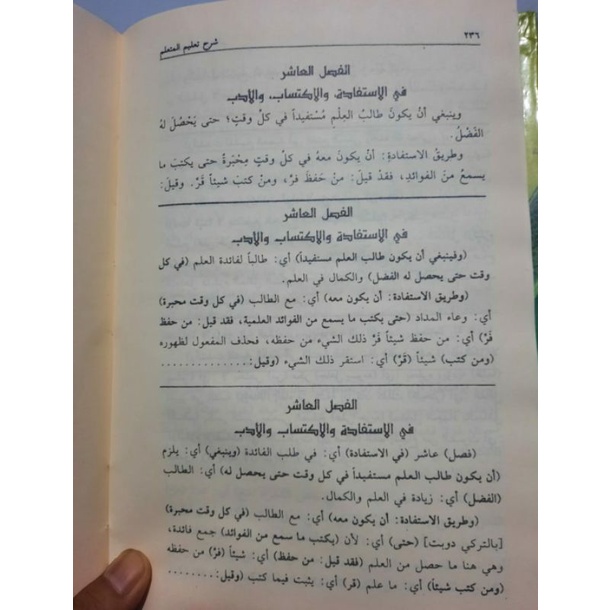 ٢٣٦
شرح تعليم المتعلم
الفصل العاشر
في الاستفادة، والاكتساب، والأدب
وينبغي أنْ يكونَ طالبُ العِلْمِ مُسْتفيداً في كلِّ وقتٍ؛ حتى يَحْصُلَ لهُ
الفَضْلُ.
وطريقُ الاستفادةِ: أن يكونَ معه في كلِّ وقتٍ مِحْبَرَةٌ حتى يكتبَ ما
يسمعُ منَ الفوائدِ، فقدْ قيلَ: منْ حَفظَ فرَّ، ومنْ كتبَ شيئاً قَرَّ. وقيلَ:
الفصل العاشر
في الاستفادة والاكتساب والأدب
(وفينبغي أن يكون طالب العلم مستفيداً) أي: طالباً لفائدة العلم (في كل
وقت حتى يحصل له الفضل) والكمال في العلم.
(وطريق الاستفادة: أن يكون معه) أي: مع الطالب (في كل وقت محبرة)
أي: وعاء المداد (حتى يكتب ما يسمع من الفوائد العلمية، فقد قيل: من حفظ
فَرَّ) أي: من حفظ شيئاً فَرَّ ذلك الشيء من حفظه، فحذف المفعول لظهوره
(ومن كتب) شيئاً (قَرَّ) أي: استقر ذلك الشيء (وقيل:..............
الفصل العاشر
في الاستفادة والاكتساب والأدب
(فصل) عاشر (في الاستفادة) أي: في طلب الفائدة (وينبغي) أي: يلزم
(أن يكون طالب العلم مستفيداً في كل وقت حتى يحصل له) أي: الطالب
(الفضل) أي: زيادة في العلم والكمال.
(وطريق الاستفادة: أن يكون معه) أي: مع الطالب (في كل وقت محبرة)
[بالتركي دويت] (حتى) أي: لأن (يكتب ما سمع من الفوائد) جمع فائدة،
وهي هنا ما حصل من العلم (فقد قيل: من حفظ) أي: شيئاً (فرَّ) من حفظه
(ومن كتب شيئاً) أي: ما علم (قر) أي: يثبت فيما كتب (وقيل:........